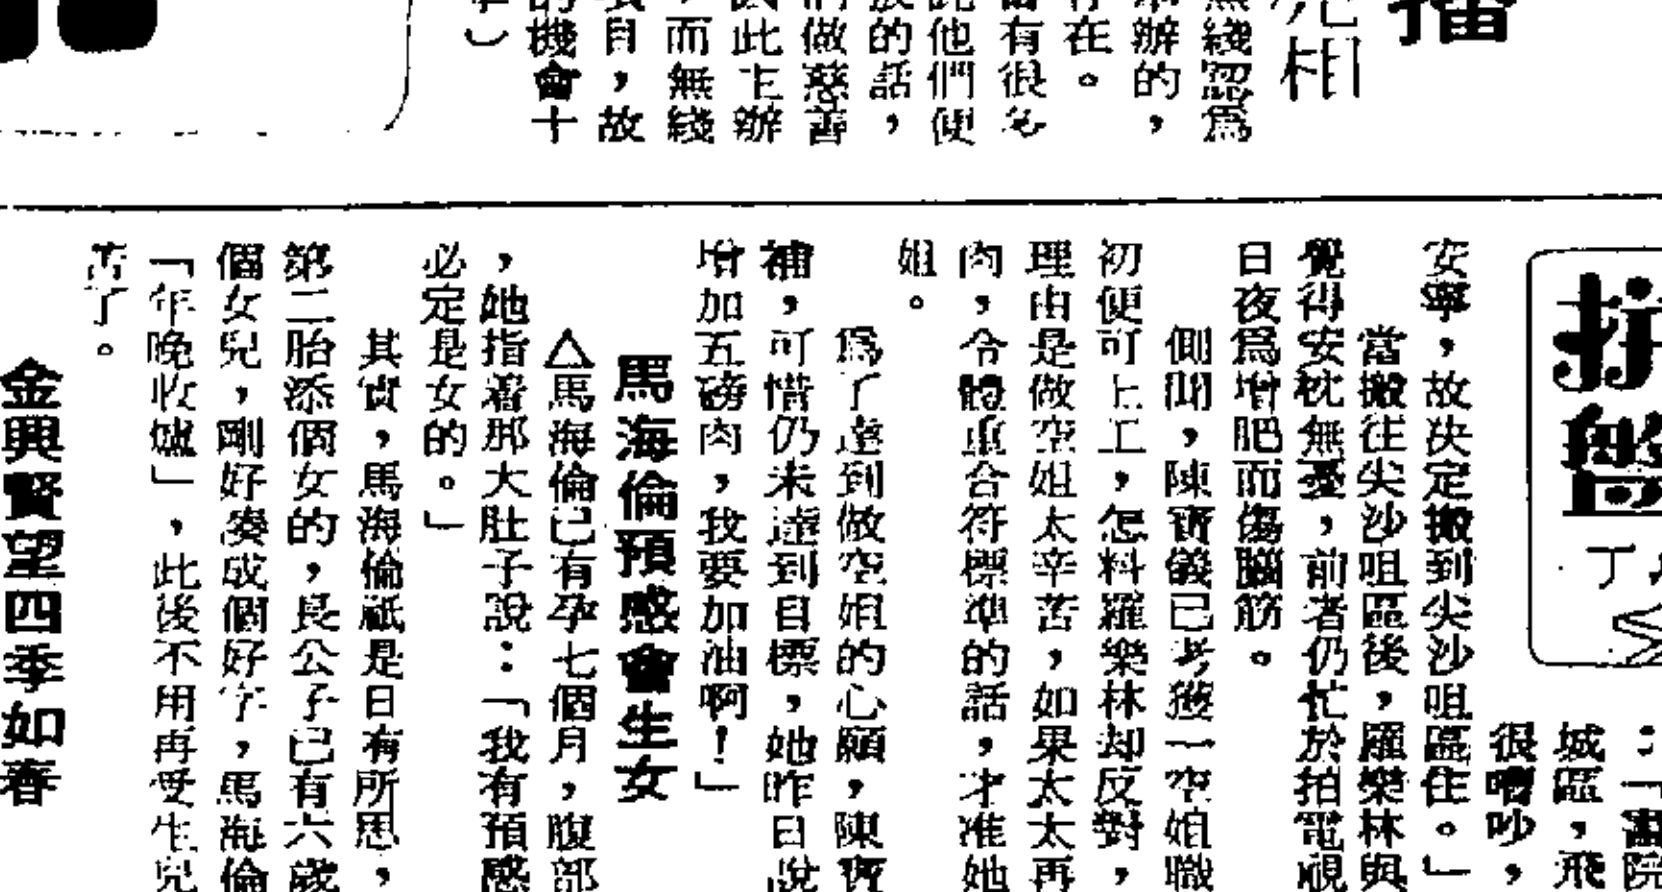 播
無綫認爲
辦的，
存在。
有很多
他們便
的話，
做慈善
此主辦
，而無綫
項目，故
的機會十
）
拼盤
：「畫院
城區，飛
很嘈吵，
安寧，故决定搬到尖沙咀區住。」
當搬往尖沙咀區後，羅樂林與
覺得安枕無憂，前者仍忙於拍電視
日夜爲增肥而傷腦筋。
側聞，陳寶儀已考獲一空姐職
初便可上工，怎料羅樂林却反對，
理由是做空姐太辛苦，如果太太再
肉，令體重合符標準的話，才准她
姐。
爲了達到做空姐的心願，陳寶
補，可惜仍未達到目標，她昨日說
增加五磅肉，我要加油啊！」
馬海倫預感會生女
△馬海倫已有孕七個月，腹部
，她指着那大肚子說：「我有預感
必定是女的。」
其實，馬海倫祇是日有所思，
第二胎添個女的，長公子已有六歲
個女兒，剛好湊成個好字，馬海倫
「年晚收爐」，此後不用再受生兒
苦了。
金興賢望四季如春